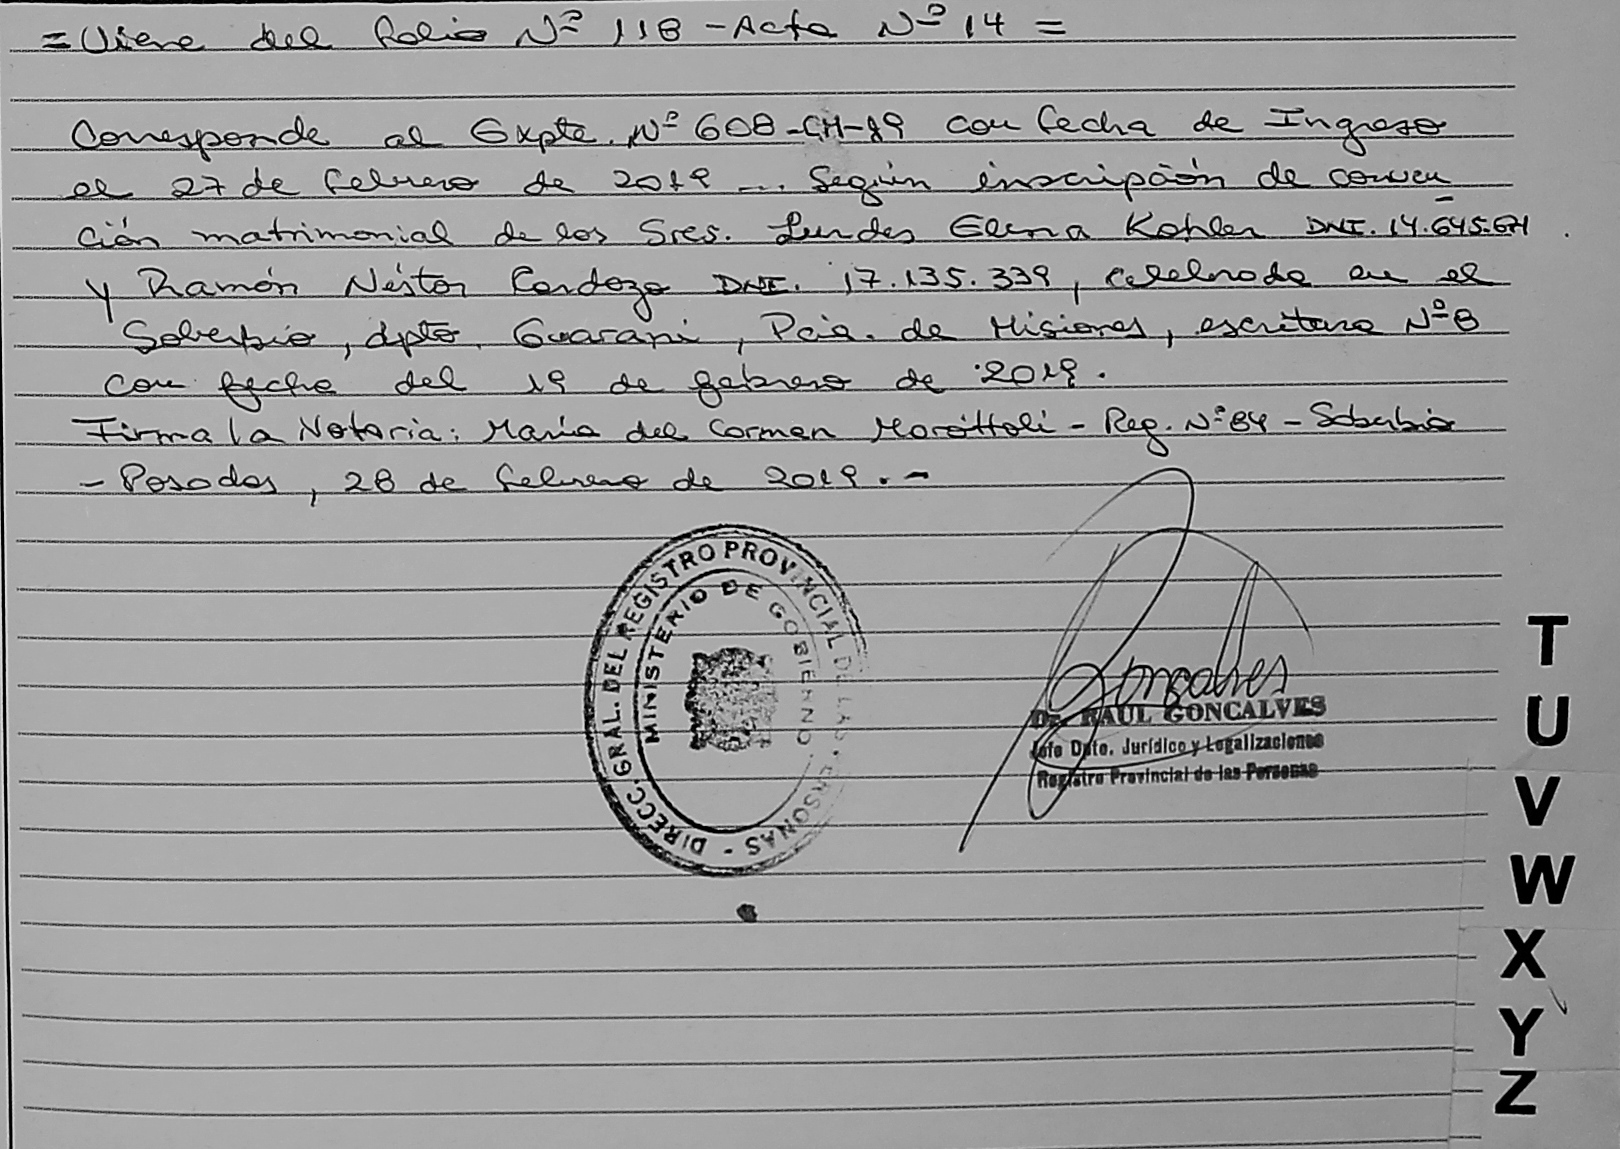 =Viene del Folio Nº 118 -Acta Nº 14 =
Corresponde al Expte. Nº 608-CM-19 con fecha de Ingreso
el 27 de febrero de 2019 ... Según inscripción de conven
ción matrimonial de los Sres. Lurdes Elena Kohler DNI. 14.645.671
y Ramón Néstor Cardozo DNI. 17.135.339, celebrada en el
Soberbio, dpto. Guaraní, Pcia. de Misiones, escritura Nº8
con fecha del 19 de febrero de 2019.
Firma la Notaria: María del Carmen - Reg. Nº84 - Soberbio
- Posadas, 28 de febrero de 2019.-
DIRECC. GRAL. DEL REGISTRO PROVINCIAL DE LAS PERSONAS -
MINISTERIO DE GOBIERNO
Goncalves
Dr. RAUL GONCALVES
Jefe Dpto. Jurídico y Legalizaciones
Registro Provincial de las Personas
T
U
V
W
X
Y
Z